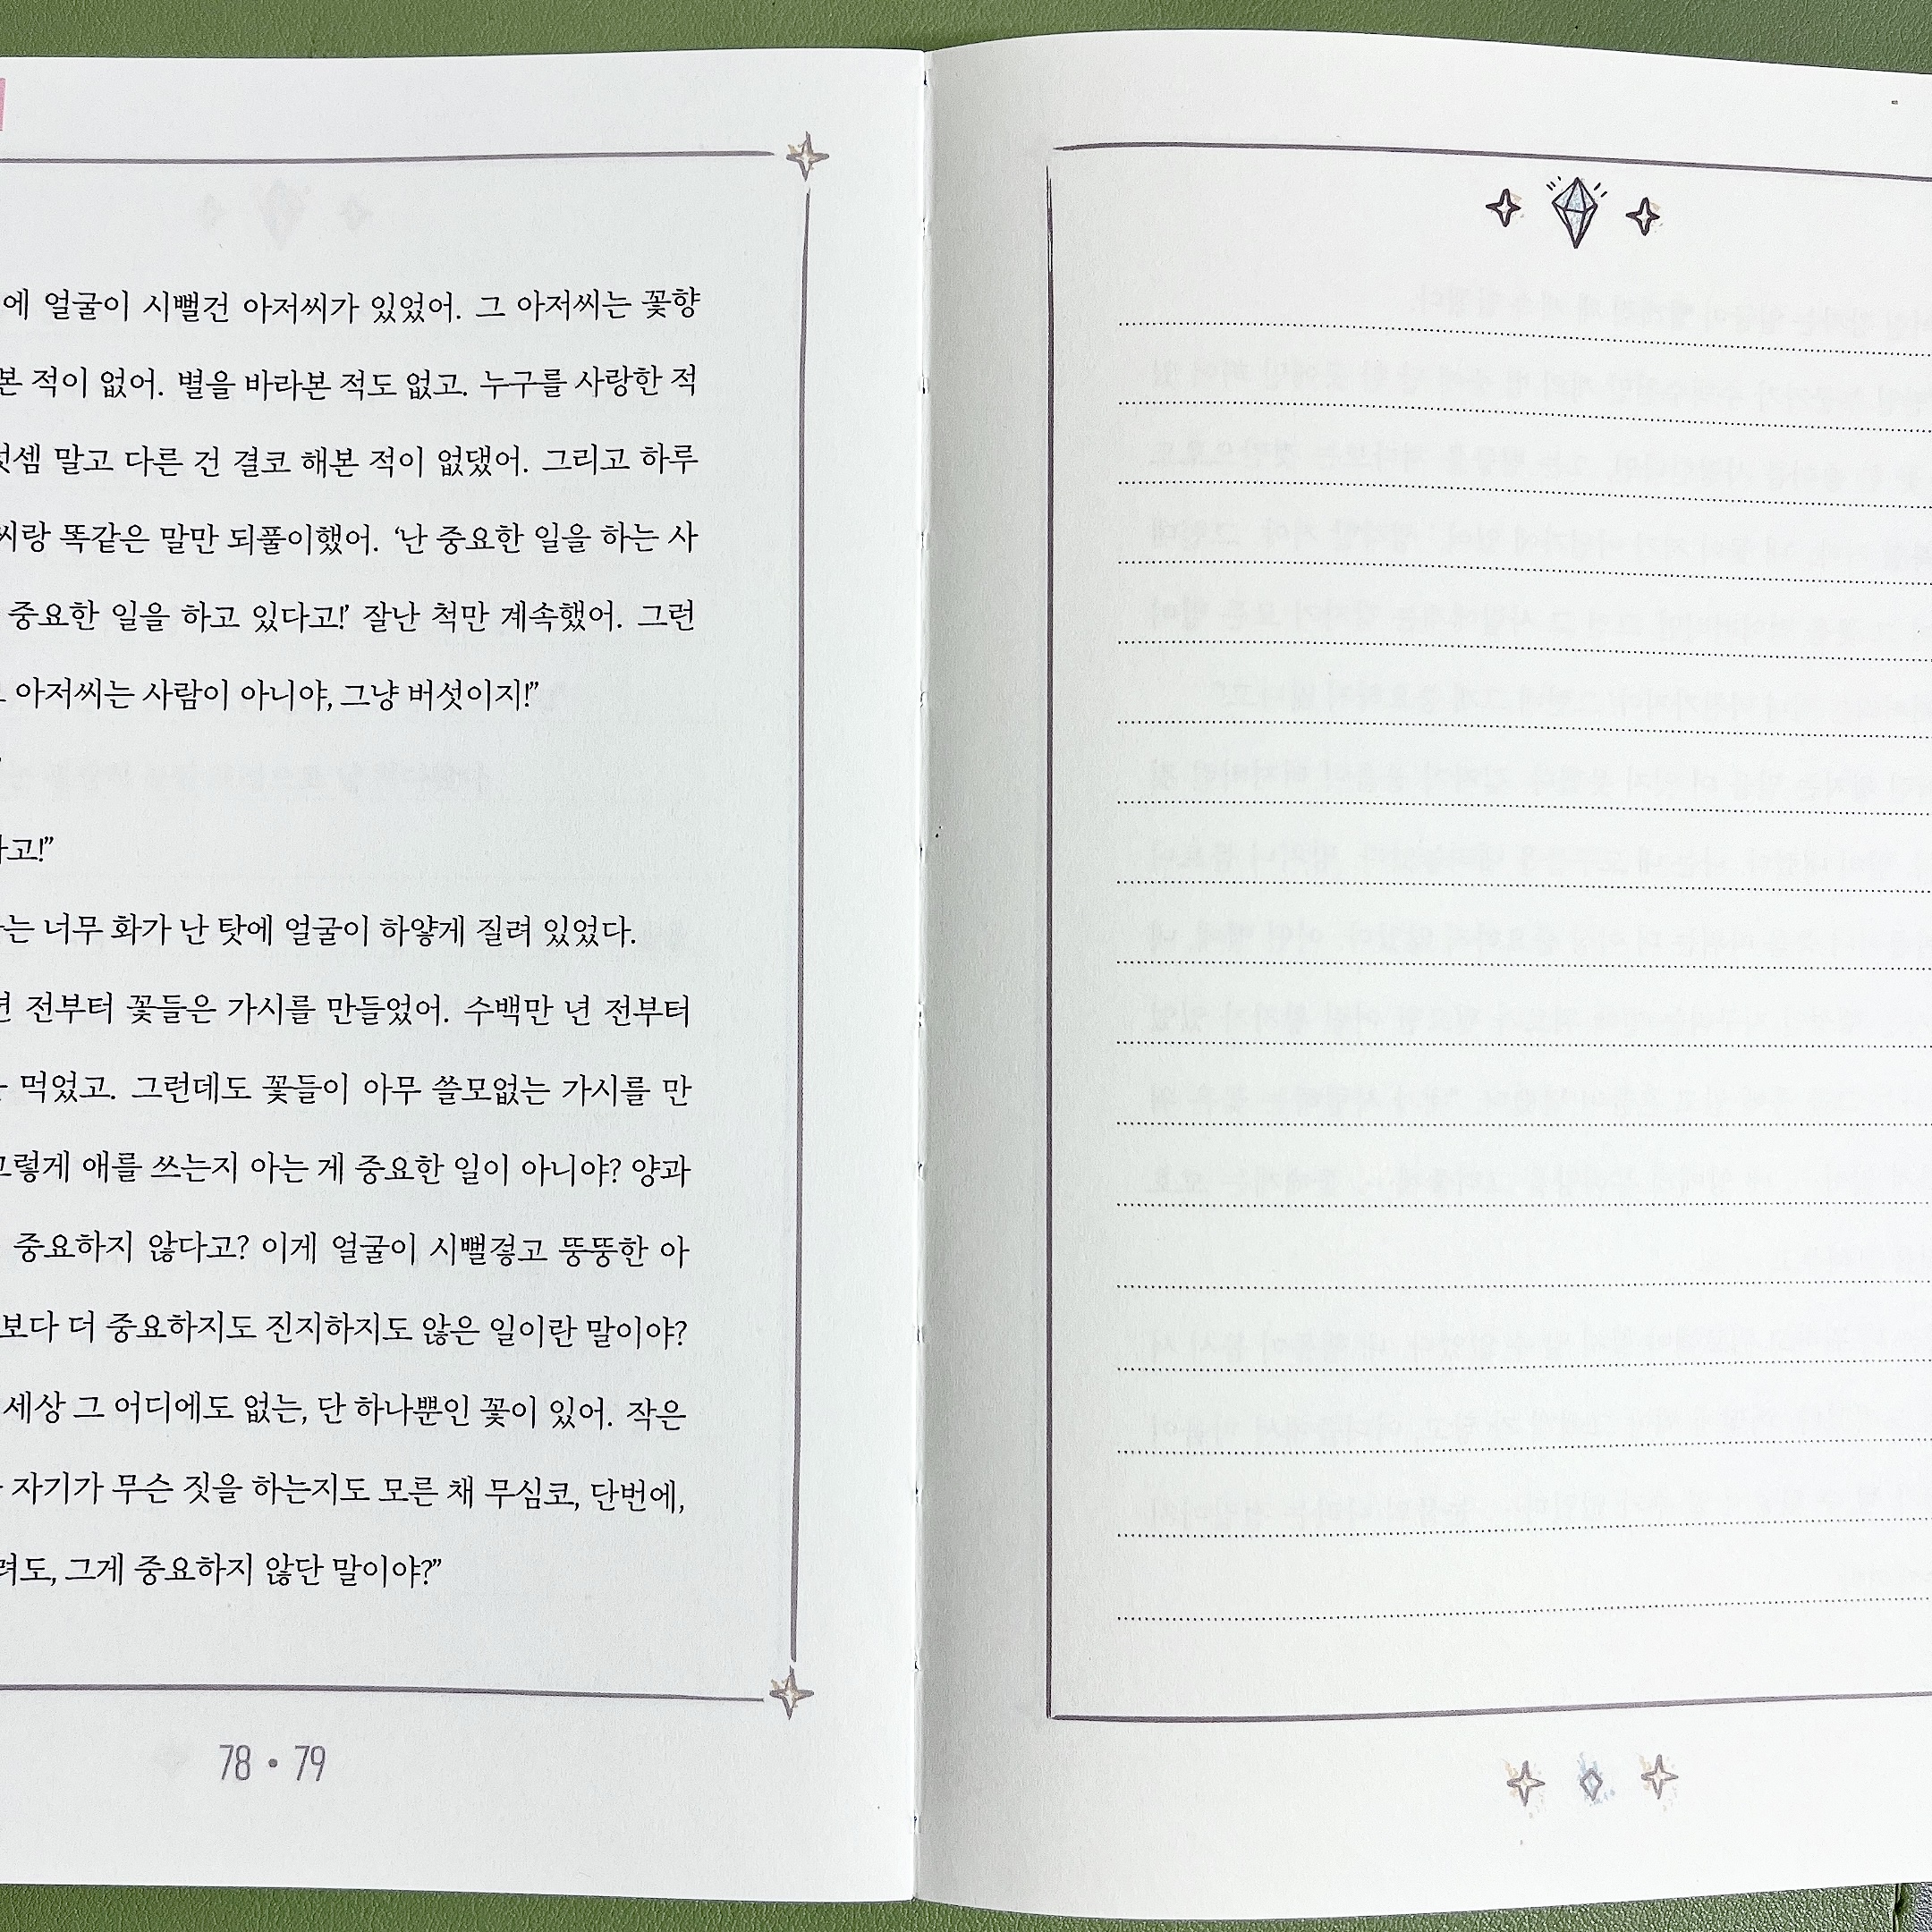 에 얼굴이 시뻘건 아저씨가 있었어. 그 아저씨는 꽃향
본 적이 없어. 별을 바라본 적도 없고. 누구를 사랑한 적
덧셈 말고 다른 건 결코 해본 적이 없댔어. 그리고 하루
씨랑 똑같은 말만 되풀이했어. ‘난 중요한 일을 하는 사
중요한 일을 하고 있다고!’ 잘난 척만 계속했어. 그런
아저씨는 사람이 아니야, 그냥 버섯이지!”
라고!”
는 너무 화가 난 탓에 얼굴이 하얗게 질려 있었다.
년 전부터 꽃들은 가시를 만들었어. 수백만 년 전부터
먹었고. 그런데도 꽃들이 아무 쓸모없는 가시를 만
그렇게 애를 쓰는지 아는 게 중요한 일이 아니야? 양과
중요하지 않다고? 이게 얼굴이 시뻘겋고 뚱뚱한 아
보다 더 중요하지도 진지하지도 않은 일이란 말이야?
세상 그 어디에도 없는, 단 하나뿐인 꽃이 있어. 작은
자기가 무슨 짓을 하는지도 모른 채 무심코, 단번에,
려도, 그게 중요하지 않단 말이야?”
78 • 79